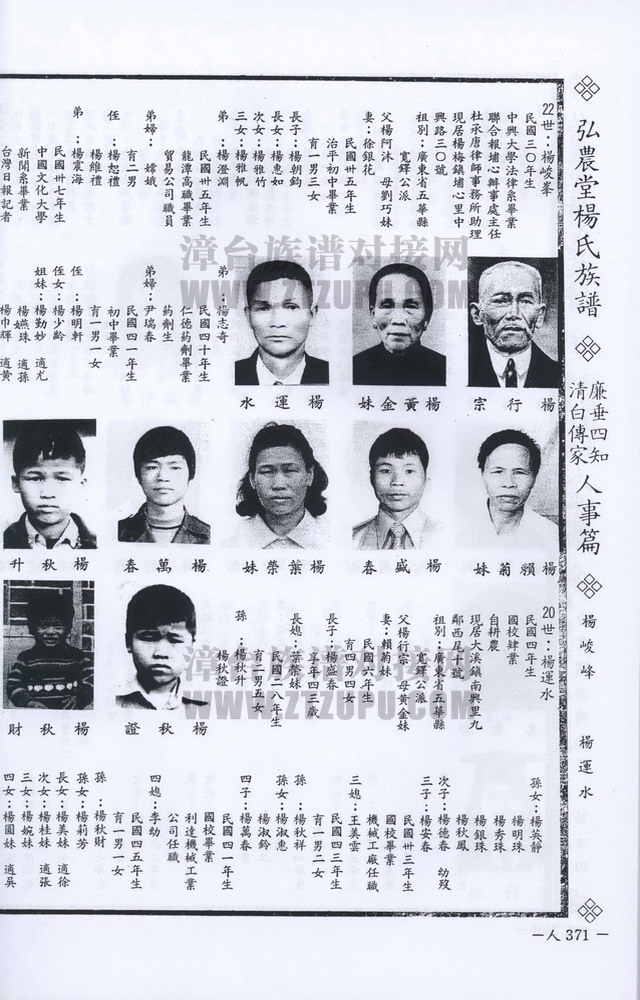 弘農堂楊氏族譜
廉垂四知
清白傳家
人事篇
楊峻峰
楊運水
22世：楊峻峯
民國三〇年生
中興大學法律系畢業
聯合報埔心辦事處主任
杜承唐律師事務所助理
現居楊梅鎮埔心里中
興路三〇號
祖別：廣東省五華縣
寬鐸公派
父楊阿沐　母劉巧妹
妻：徐銀花
民國卅五年生
治平初中畢業
育一男三女
長子：楊朝鈞
長女：楊惠如
次女：楊雅竹
三女：楊雅帆
弟：楊澄淵
民國卅五年生
龍潭高職畢業
貿易公司職員
弟婦：嫦娥
育二男
侄：楊恕禮
楊維禮
弟：楊震海
民國卅七年生
中國文化大學
新聞系畢業
台灣日報記者
弟：楊志奇
民國四十年生
仁德藥劑畢業
药劑生
弟婦：尹瑞春
民國四一年生
初中畢業
育一男一女
侄：楊明軒
侄女：楊少齡
姐妹：楊勤妙　適尤
楊燕珠　適孫
楊巾輝　適黃
宗行楊
妹金黃楊
水運楊
妹菊賴楊
春盛楊
妹榮葉楊
春萬楊
升秋楊
20世：楊運水
民國四年生
國校肄業
自耕農
現居大溪鎮南興里九
鄰西尾十號
祖別：廣東省五華縣
寬鐸公派
父楊行宗　母黃金妹
妻：賴菊妹
民國六年生
育四男四女
長子：楊盛春
享年四三歲
長媳：葉榮妹
民國二八年生
育二男五女
孫：楊秋升
楊秋證
證秋楊
財秋楊
孫女：楊英靜
楊明珠
楊秀珠
楊銀珠
楊秋鳳
次子：楊德春　幼歿
三子：楊安春
民國卅三年生
國校畢業
機械工廠任職
三媳：王美雲
民國四三年生
育一男二女
孫：楊秋祥
孫女：楊淑惠
楊淑鈴
四子：楊萬春
民國四一年生
國校畢業
利達機械工業
公司任職
四媳：李幼
民國四五年生
育一男一女
孫：楊秋財
孫女：楊莉芳
長女：楊美妹　適徐
次女：楊桂妹　適張
三女：楊婉妹
四女：楊圓妹　適吳
－人371－
漳台族谱对接网
WWW.ZTZUPU.COM
漳台族谱对接网
WWW.ZTZUPU.COM